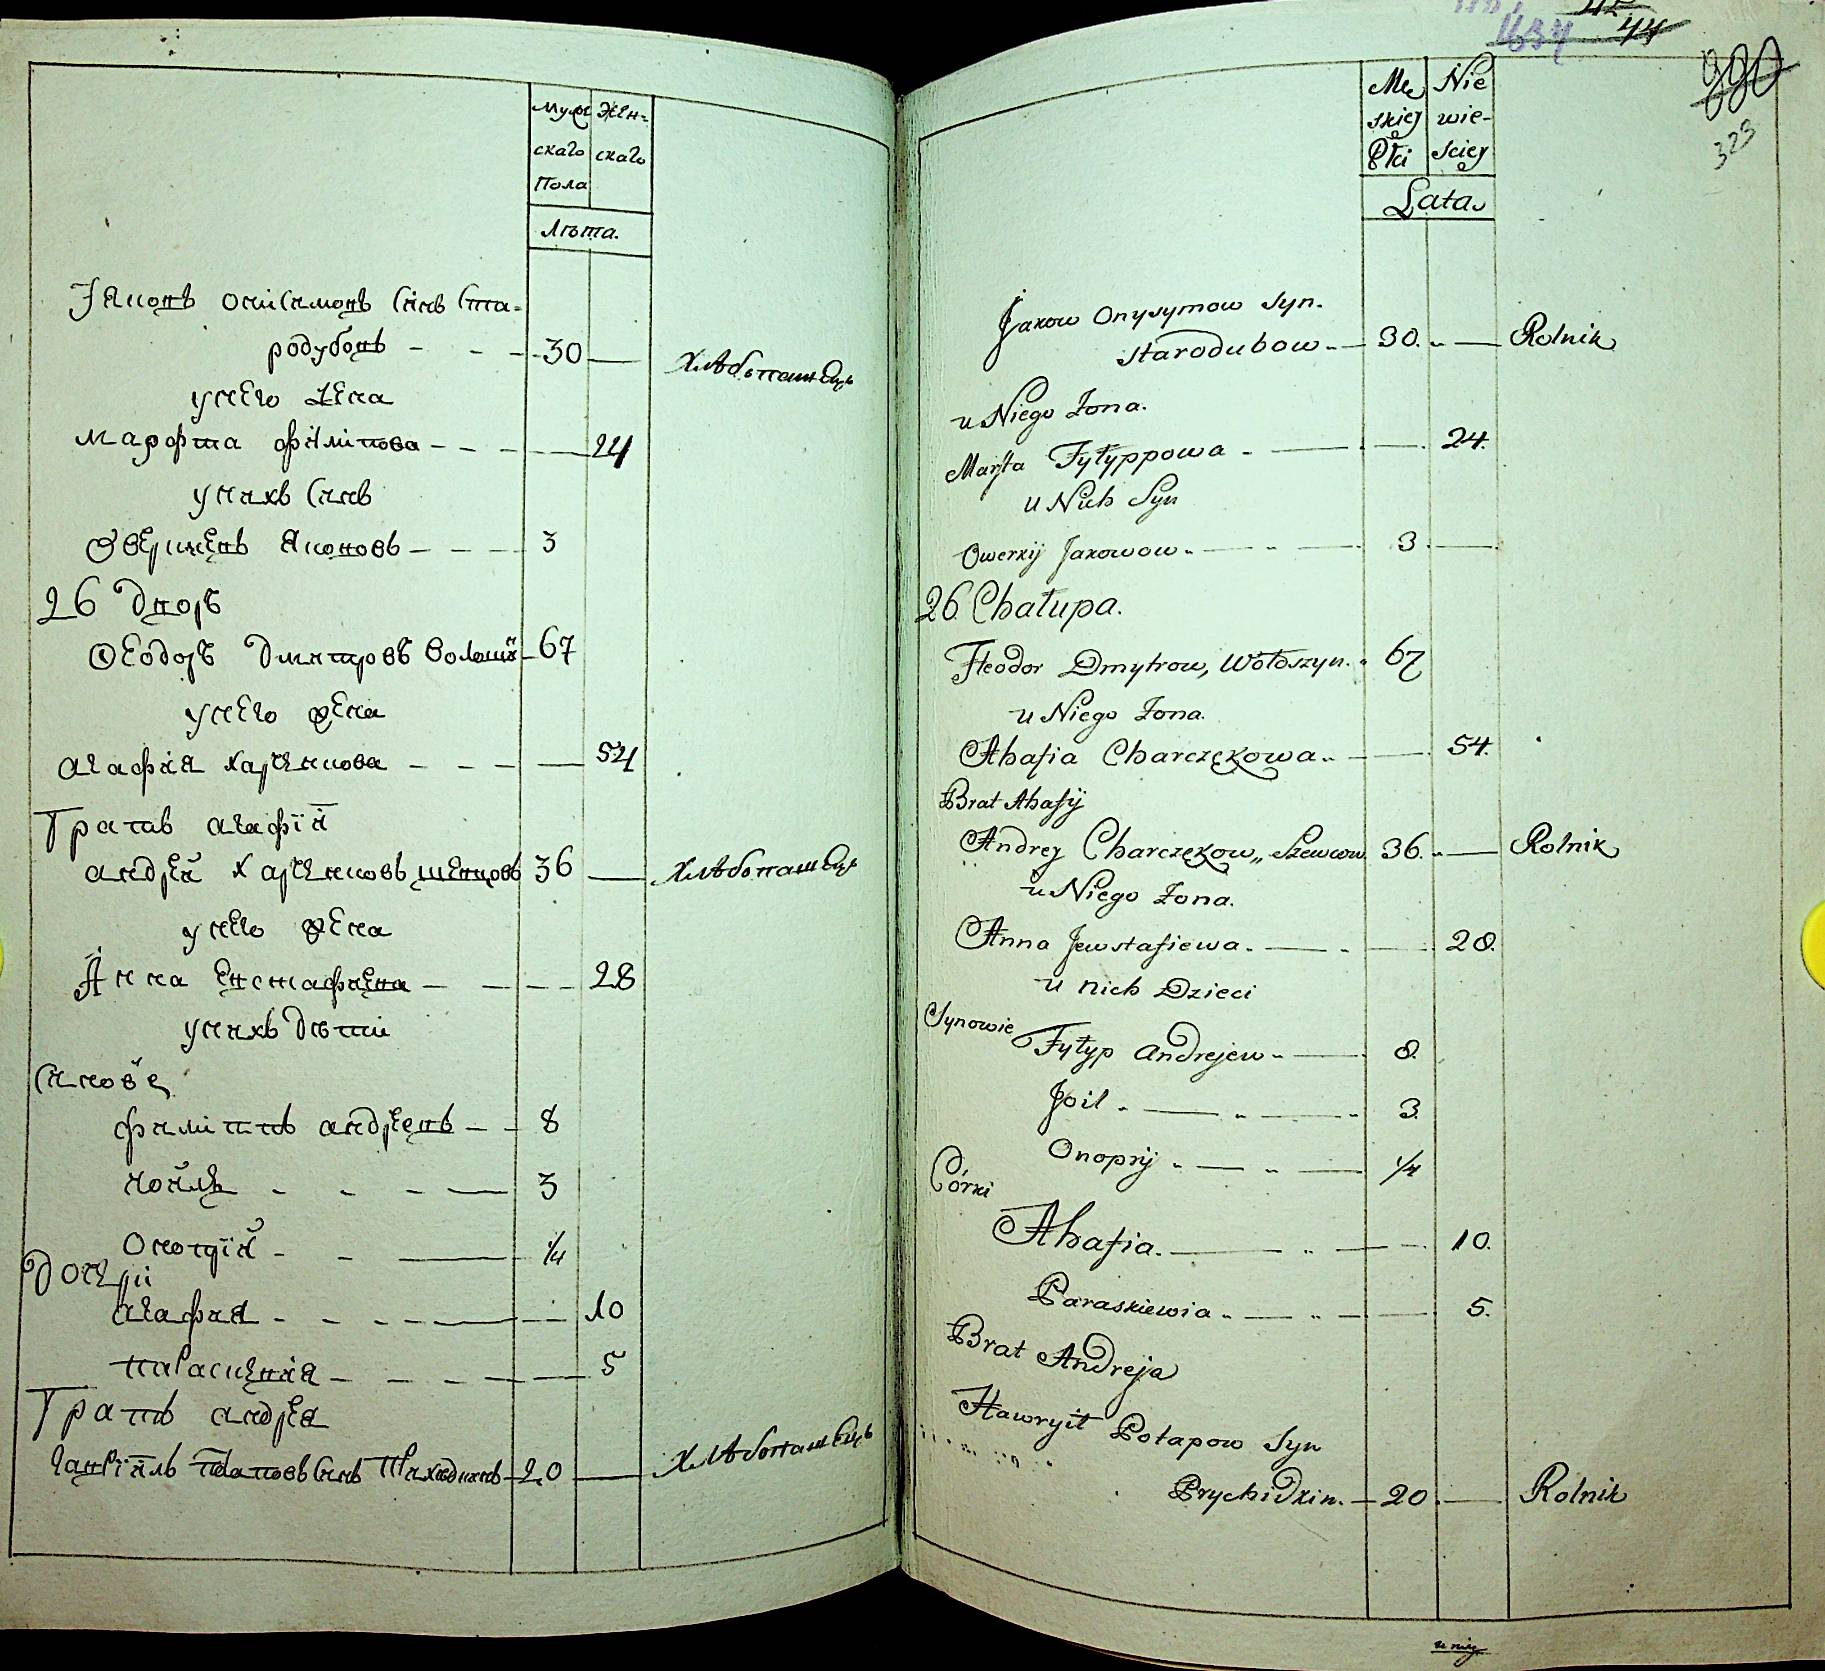 Муже
скаго
Пола
Жен-
скаго
Лѣта.
Іяковъ Онісимовъ Синъ Ста-
родубовъ - - - 30 — Хлѣбопашецъ
у него Жена
Марфта Філіпова - - - — 24
у нихъ Синъ
Оверкіевъ Яковов - - - 3
26 Дворъ
Ѳеодоръ Дмитровъ Волошін 67
у него жена
Агафія Харченкова - - - — 54
Братъ Агафіи
Андрей Харченковъ Шевцовъ 36 — Хлѣбопашецъ
у него жена
Анна Евстафіева - - - - 28
у нихъ Дѣти
Синовѣ
Филіппъ Андреевъ - - 8
Иоиль - - - — 3
Онопрій - - — 1/4
Дочери
Агафия - - - - — 10
Параскевія - - - - — 5
Братъ Андрея
Гавріилъ Потаповъ Синъ Прихидкинъ 20 — Хлѣбопашецъ
44
329
Mę
skiej
Płci
Nie
wie-
sciej
Lata
Jakow Onysymow Syn.
Starodubow. — 30. — Rolnik
u Niego Żona.
Marfta Fyłyppowa - — — 24.
u Nich Syn
Owerkij Jakowow. — " — 3. —
26 Chałupa.
Fteodor Dmytrow, Wołoszyn. 67
u Niego Żona.
Ahafia Charczękowa.. — — 54.
Brat Ahafij
Andrey Charczękow,, Szewcow 36. — Rolnik
u Niego Żona.
Anna Jewstafiewa. — - — 28.
u nich Dzieci
Synowie
Fyłyp Andrejew - — 8.
Joil . — " — - 3.
Onoprij " — " — 1/4
Córki
Ahafia. — " — - 10.
Paraskiewia " — " — 5.
Brat Andreja
Hawryił Potapow Syn
Prychidkin. — 20. — Rolnik
u niej